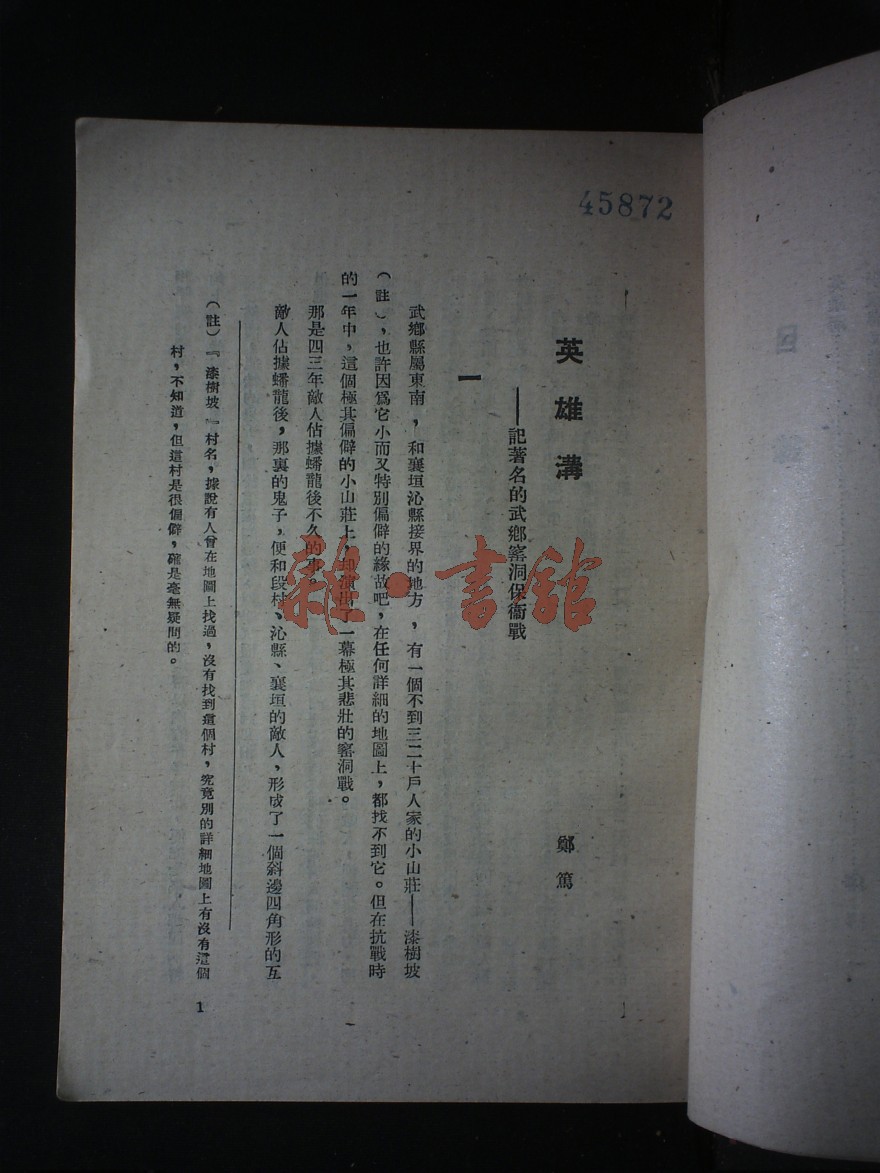 45872
英雄溝
——記著名的武鄉窰洞保衞戰
鄭篤
一
武鄉縣屬東南,和襄垣沁縣接界的地方,有一個不到三二十戶人家的小山莊——漆樹坡
(註),也許因爲它小而又特別偏僻的緣故吧,在任何詳細的地圖上,都找不到它。但在抗戰時
的一年中,這個極其偏僻的小山莊上,却演出了一幕極其悲壯的窰洞戰。
那是四三年敵人佔據蟠龍後不久的事。
敵人佔據蟠龍後,那裏的鬼子,便和段村、沁縣、襄垣的敵人,形成了一個斜邊四角形的互
(註)『漆樹坡』村名,據說有人曾在地圖上找過,沒有找到這個村,究竟別的詳細地圖上有沒有這個
村,不知道,但這村是很偏僻,確是毫無疑問的。
1
雜·書館